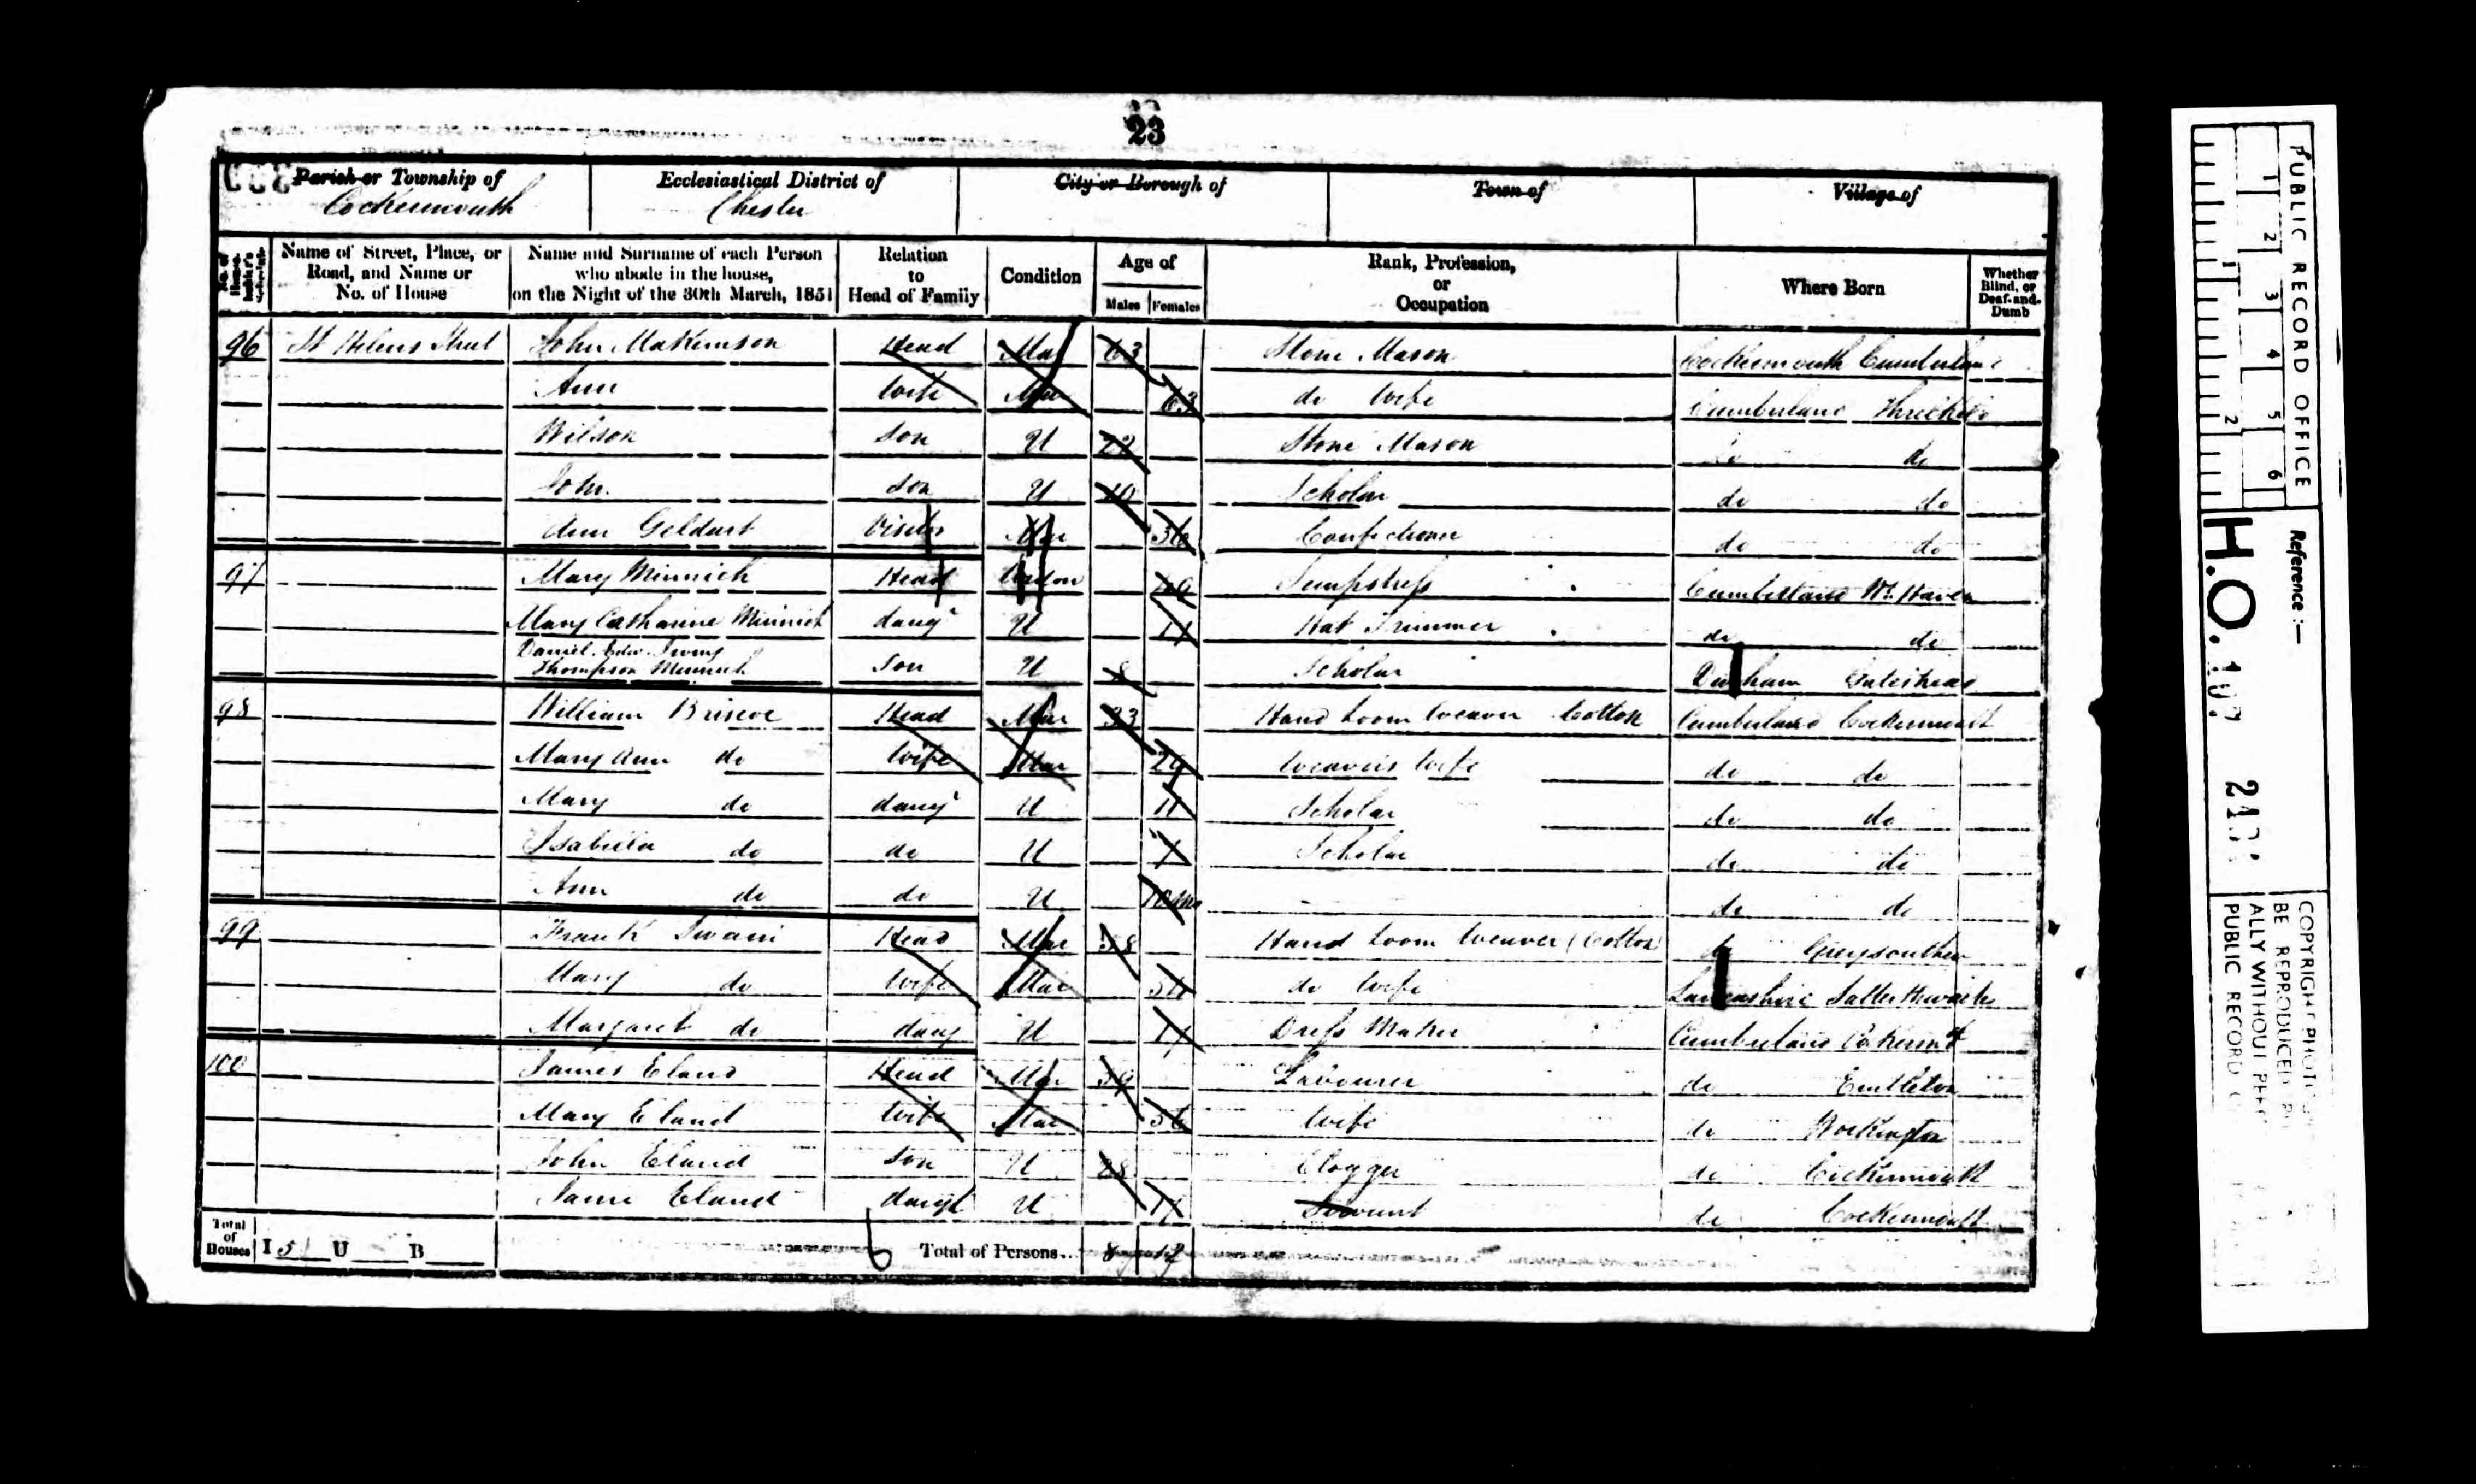 23
Parish or Township of Ecclesiastical District of City or Borough of Town of Village of
Cockermouth Chester
No. of House-holder's Schedule Name of Street, Place, or Road, and Name or No. of House Name and Surname of each Person who abode in the house, on the Night of the 30th March, 1851 Relation to Head of Family Condition Age of Males Females Rank, Profession, or Occupation Where Born Whether Blind, or Deaf-and-Dumb
96 St Helens Street John Makinson Head Mar 63 Stone Mason Cockermouth Cumberland
Ann Wife Mar 63 do Wife Cumberland Threlkeld
Wilson Son U 22 Stone Mason do do
John Son U 10 Scholar do do
Ann Geldart Visitor Mar 36 Confectioner do do
97 Mary Minnich Head Sempstress Cumberland Wt. Haven
Mary Catharine Minnich daug U 17 Hat Trimmer do do
Daniel Irving
Thompson Minnich Son U 8 Scholar Durham Gateshead
98 William Briscoe Head Mar 33 Hand Loom Weaver Cotton Cumberland Cockermouth
Mary Ann do Wife Mar 29 Weavers Wife do do
Mary do daug U 11 Scholar do do
Isabella do do U 7 Scholar do do
Ann do do U 10 mo do do
99 Frank Head Mar 58 Hand Loom Weaver (Cotton) do Greysouthen
Mary do Wife Mar do Wife Lancashire Satterthwaite
Margaret do daug U 17 Dress Maker Cumberland
100 James Eland Head Mar 59 Labourer do Embleton
Mary Eland Wife Mar 56 Wife do Workington
John Eland Son U 28 Clogger do Cockermouth
Jane Eland daugt U 17 Servant do Cockermouth
Total of Houses I 5 U B Total of Persons... 8 12
6
PUBLIC RECORD OFFICE
1 2 3 4 5 6
1 2
Reference :—
H.O. 107
COPYRIGHT
BE REPRODUCED
ALLY WITHOUT
PUBLIC RECORD